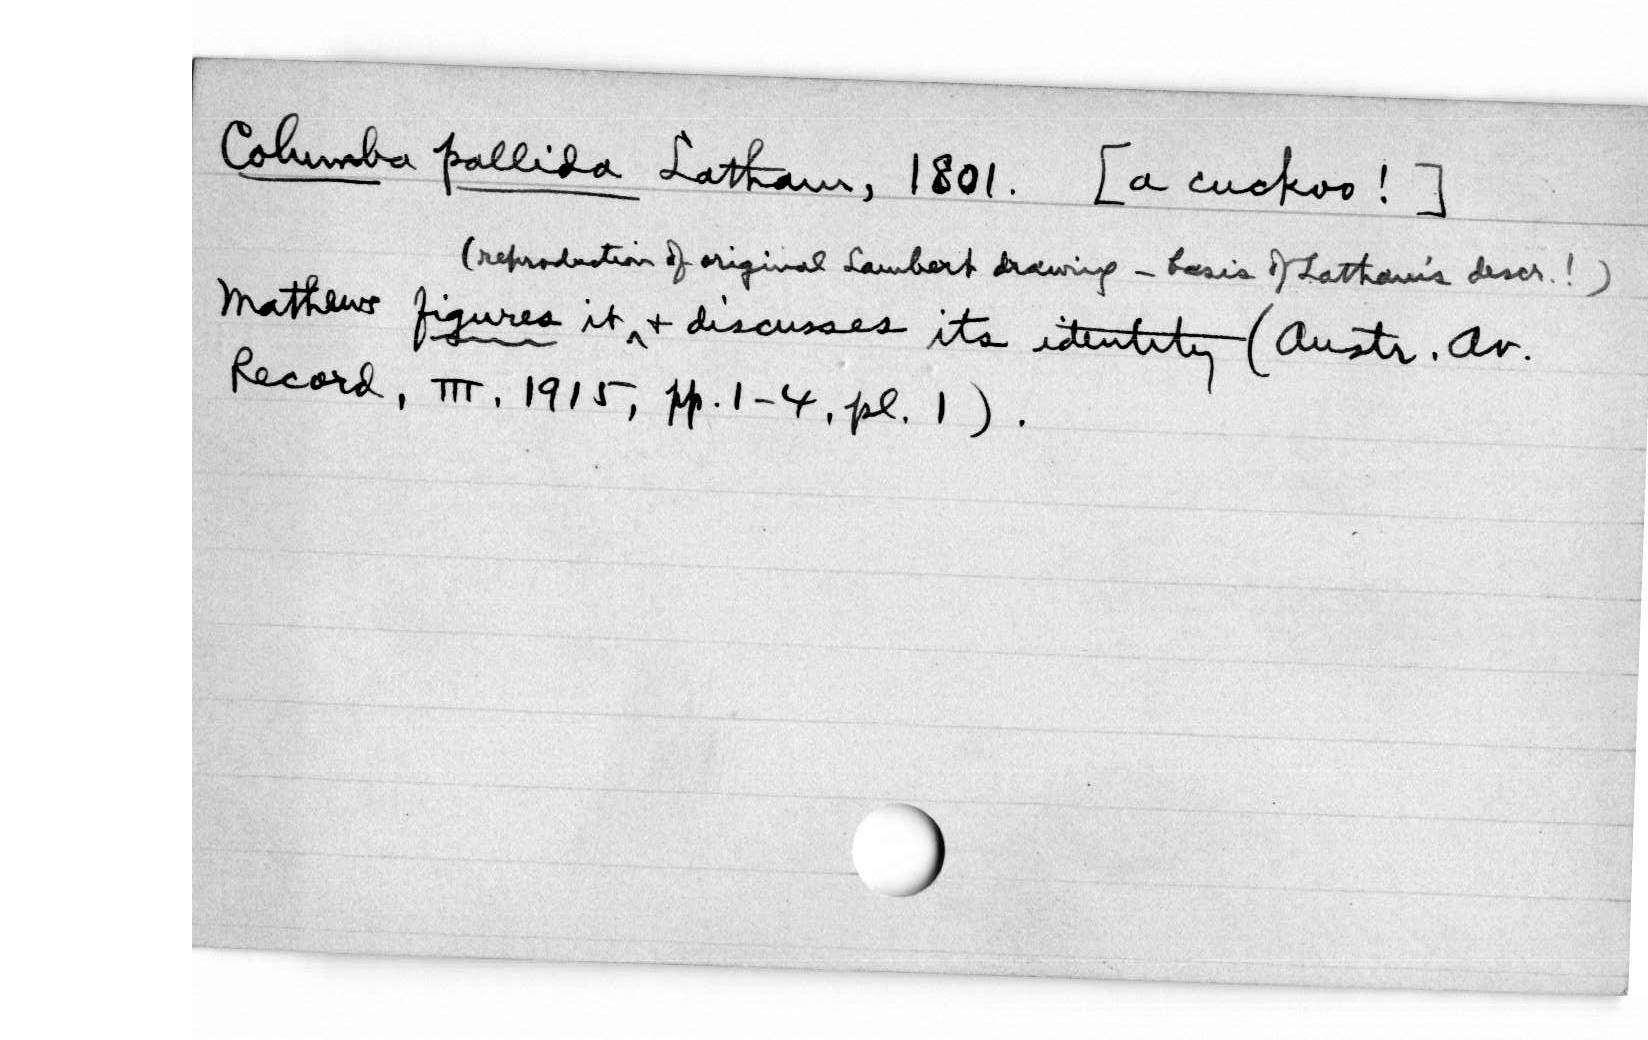 Columba pallida Latham, 1801. [a cuckoo!]
(reproduction of original Lambert drawing - basis of Latham's descr.!)
Mathews figures it ^ + discusses its identity (Austr. Av.
Record, III, 1915, pp. 1-4, pl. 1).